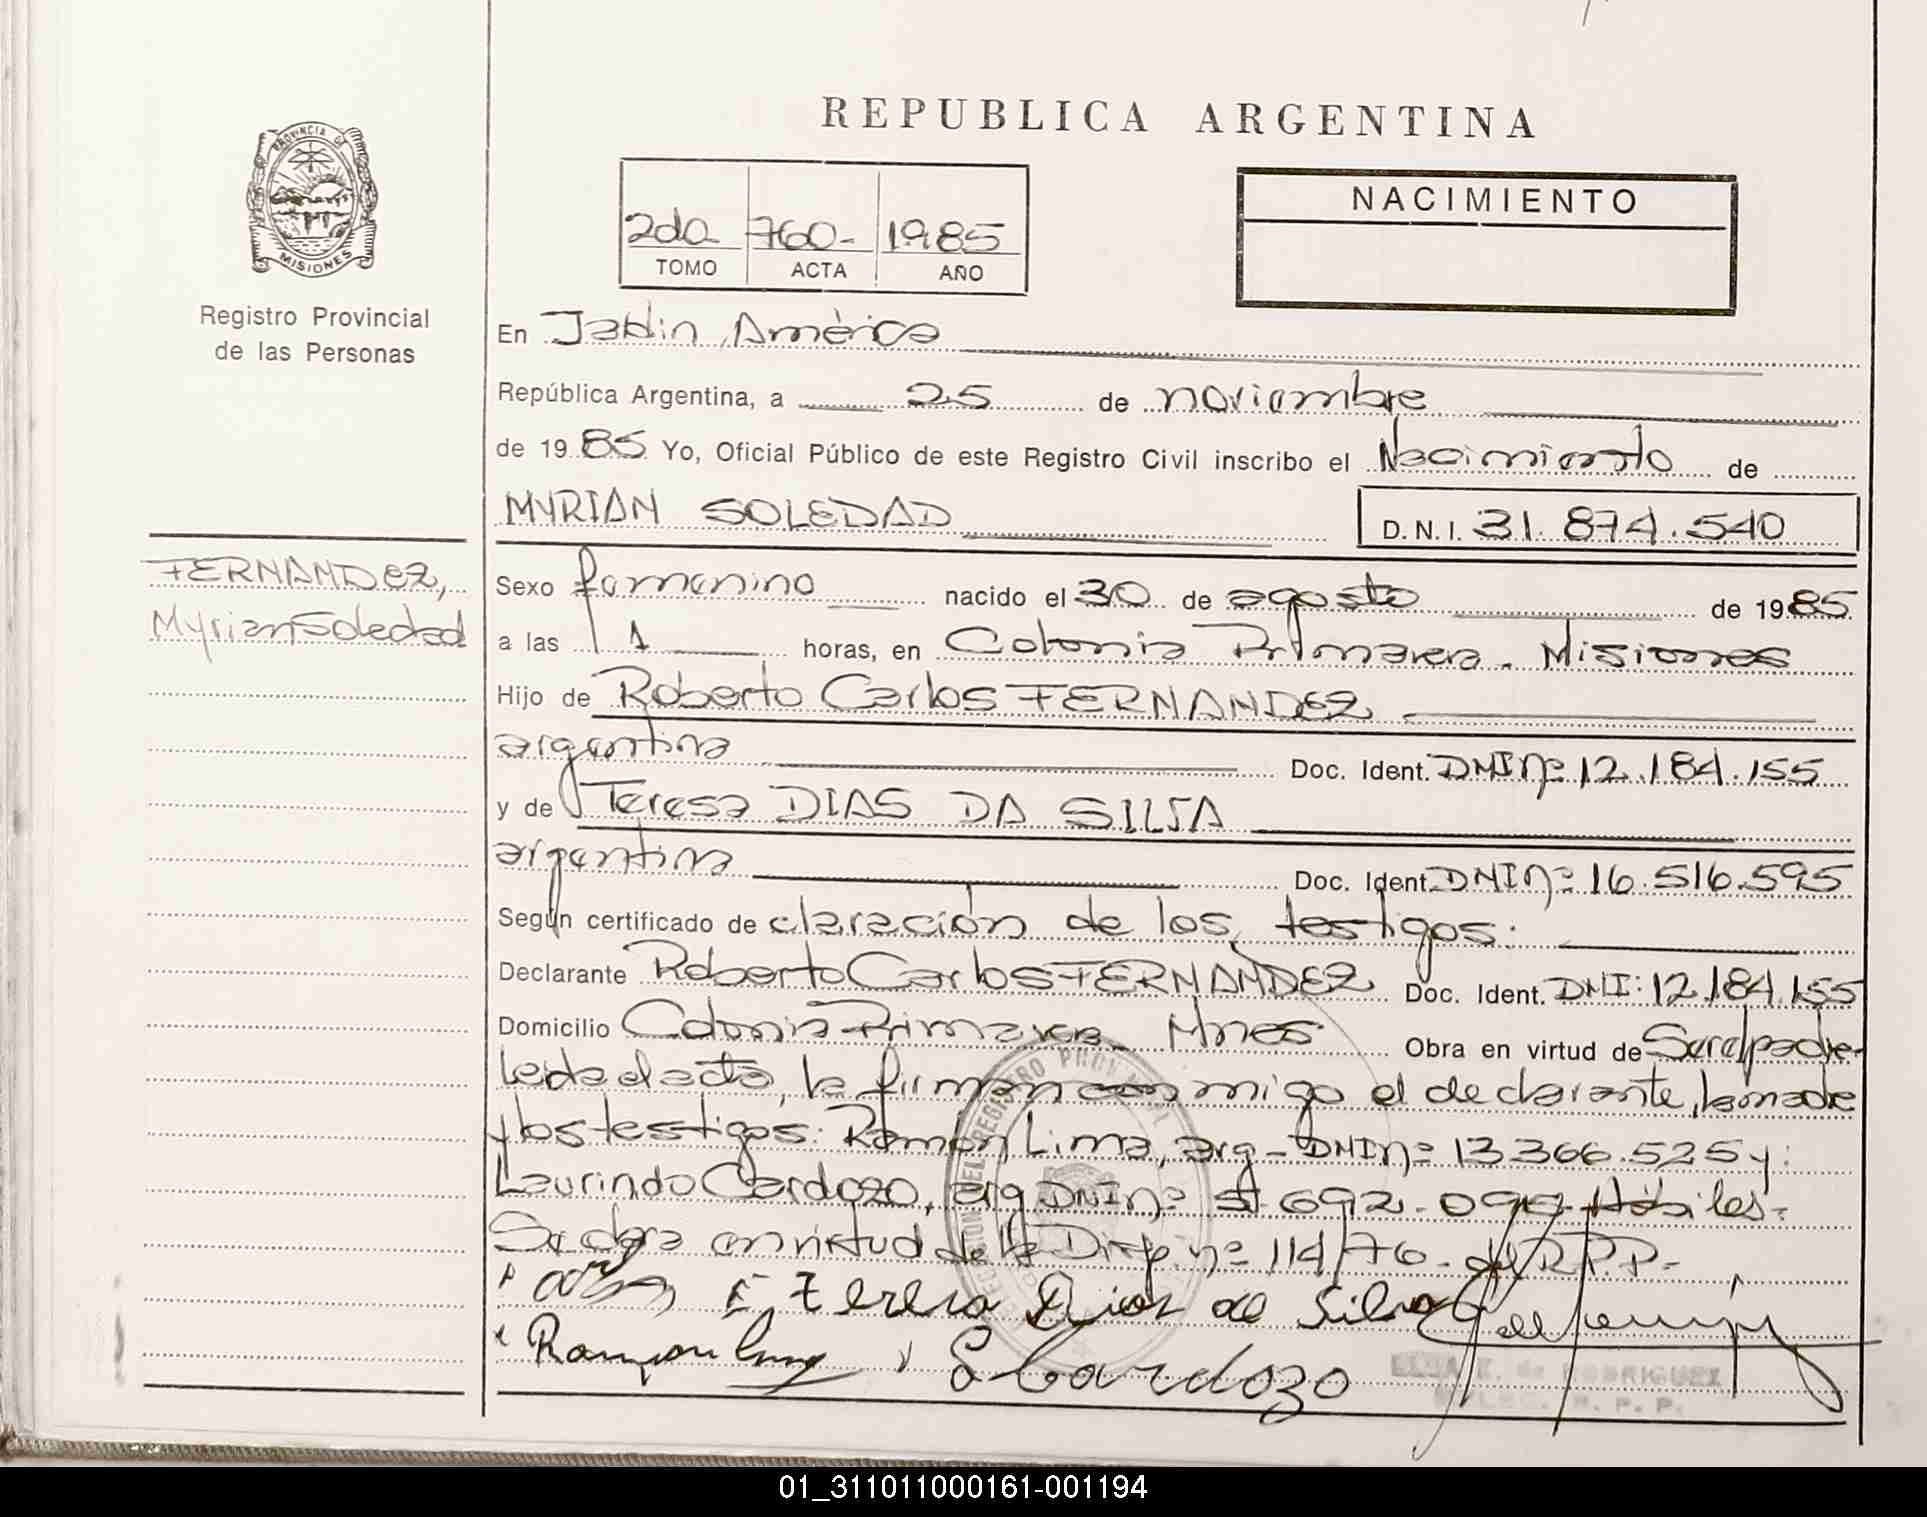 REPUBLICA ARGENTINA
PROVINCIA DE
MISIONES
Registro Provincial
de las Personas
2do 760- 1985
TOMO ACTA AÑO
NACIMIENTO
En Jardin América
República Argentina, a 25 de noviembre
de 1985 Yo, Oficial Público de este Registro Civil inscribo el Nacimiento de
MYRIAN SOLEDAD D.N.I. 31.874.540
FERNANDEZ,
Myrian Soledad
Sexo femenino nacido el 30 de agosto de 1985
a las 1 horas, en Colonia Primavera. Misiones
Hijo de Roberto Carlos FERNANDEZ
argentina Doc. Ident. DNI nº 12.184.155
y de Teresa DIAS DA SILVA
argentina Doc. Ident. DNI nº 16.516.595
Según certificado de claración de los testigos:
Declarante Roberto Carlos FERNANDEZ Doc. Ident. DNI: 12.184.155
Domicilio Colonia Primavera Mnes Obra en virtud de Ser el padre-
Leída el acta, la firman conmigo el declarante, la madre
y los testigos: Ramón Lima, arg- DNI nº 13.366.525 y:
Laurindo Cardozo, arg DNI nº 692. Hábiles-
en virtud de la Disp. nº 114/76- del RPP-
Teresa Dias da Silva
Ramon
Cardozo
de RODRIGUEZ
R. P. P.
01_311011000161-001194